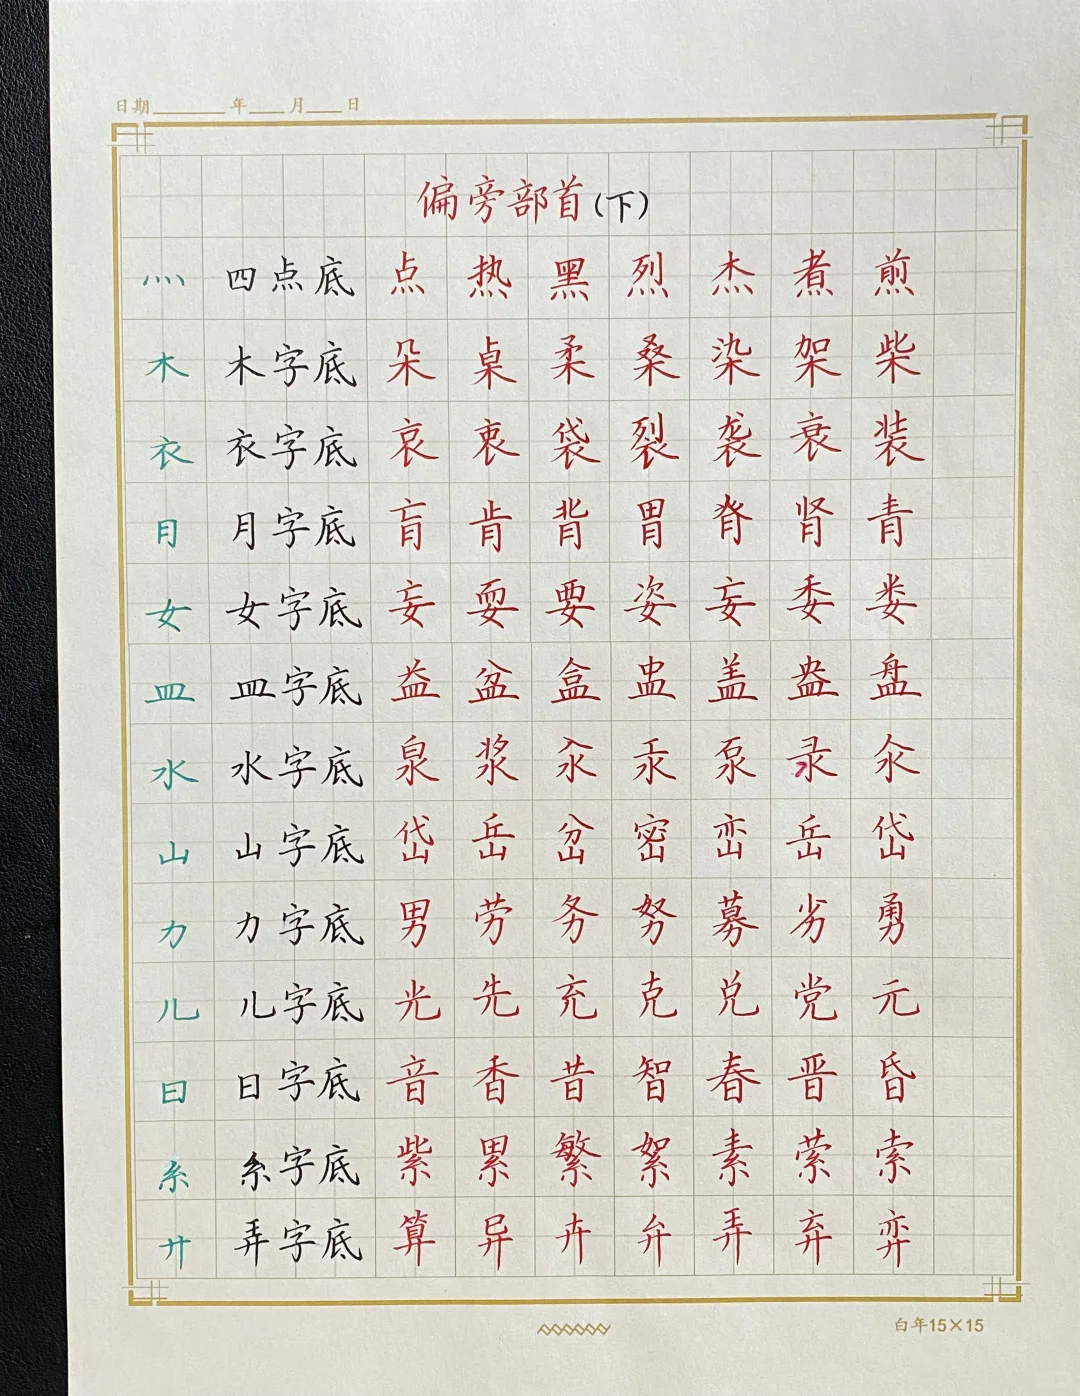 日期 年 月 日
偏旁部首(下)
灬 四点底 点 热 黑 烈 杰 煮 煎
木 木字底 朵 桌 柔 桑 染 架 柴
衣 衣字底 哀 衷 袋 裂 袭 衰 装
月 月字底 肓 肯 背 胃 脊 肾 青
女 女字底 妄 耍 要 姿 妄 委 娄
皿 皿字底 益 盆 盒 盅 盖 盎 盘
水 水字底 泉 浆 汆 汞 泵 录 汆
山 山字底 岱 岳 岔 密 峦 岳 岱
力 力字底 男 劳 务 努 募 劣 勇
儿 儿字底 光 先 充 克 兑 党 元
日 日字底 音 香 昔 智 春 晋 昏
糸 糸字底 紫 累 繁 絮 素 萦 索
廾 弄字底 算 异 卉 弁 弄 弃 弈
白年15×15